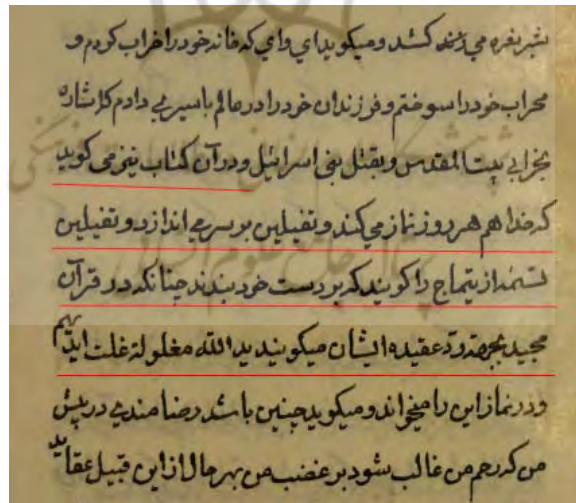 نفره می زند کشد و میکوید ای وای که خانه خود را خراب کردم و
محراب خود را سوختم و فرزندان خود را در عالم باسیری دادم که اشاره
بخرابی بیت المقدس و بقتل بنی اسرائیل و در آن کتاب نیز می کوید
که خدا هم هر روز نماز می کند و تفیلین بر سر می اندازد و تفیلین
تسمه از تیماج را کویند که بر دست خود بندند چنانکه در قرآن
مجید بجهة رد عقیده ایشان میکویند ید الله مغلولة غلت ایدیهم
و در نماز این را میخواند و میکوید چنین باشد رضامندی در پیش
من که رحم من غالب شود بر غضب من بهر حال از این قبیل عقاید